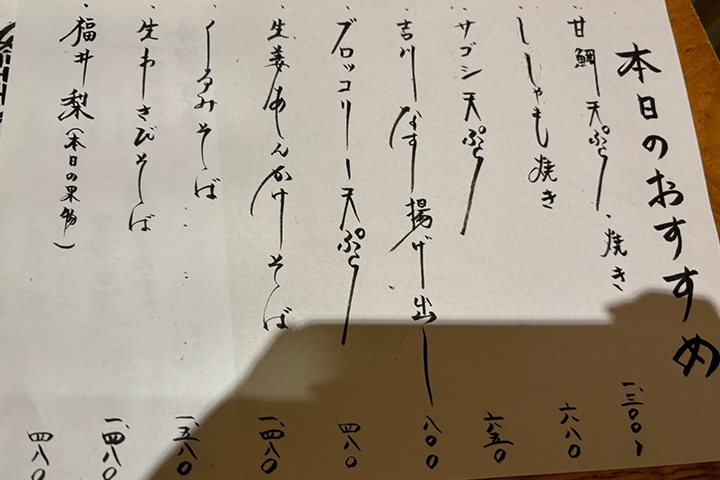 本日のおすすめ
甘鯛天ぷら・焼き 一、三〇〇
ししゃも焼き 六八〇
サゴシ天ぷら 六五〇
吉川なす揚げ出し 八〇〇
ブロッコリー天ぷら 四八〇
生姜あんかけそば 一、四八〇
くるみそば 一、五八〇
生わさびそば 一、四八〇
福井梨(本日の果物) 四八〇